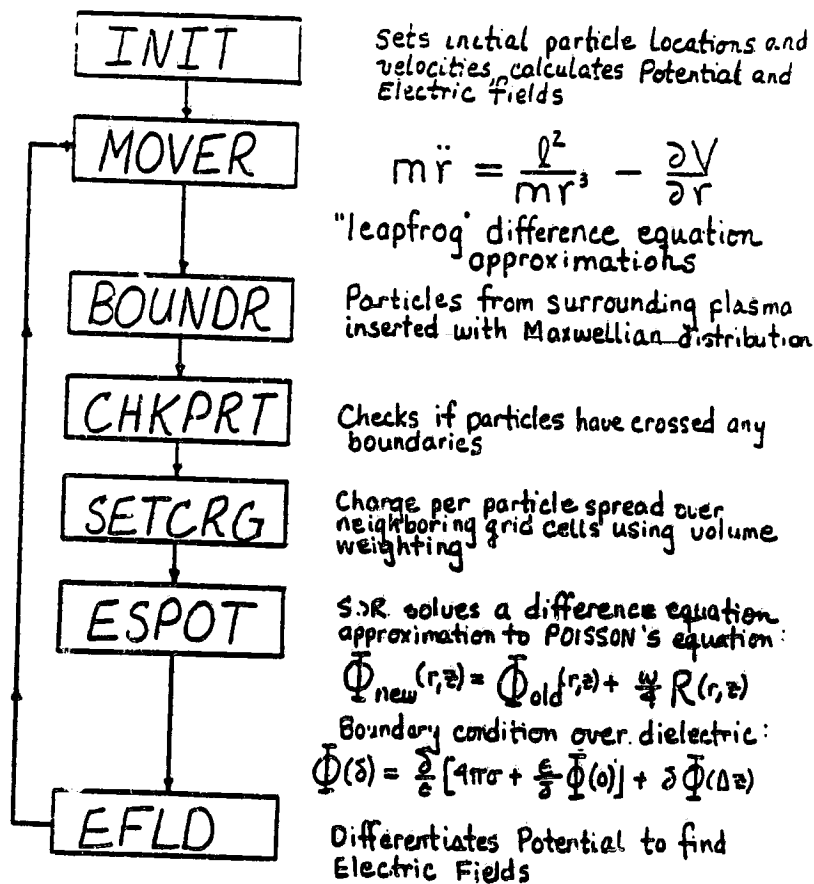 INIT
Sets initial particle Locations and
velocities, calculates Potential and
Electric fields
MOVER
m r̈ = l²/mr³ − ∂V/∂r
"leapfrog" difference equation
approximations
BOUNDR
Particles from surrounding plasma
inserted with Maxwellian distribution
CHKPRT
Checks if particles have crossed any
boundaries
SETCRG
Charge per particle spread over
neighboring grid cells using volume
weighting
ESPOT
S.O.R. solves a difference equation
approximation to POISSON's equation:
Φnew(r,z) = Φold(r,z) + ω/4 R(r,z)
Boundary condition over dielectric:
Φ(δ) = δ/ε [4πσ + ε/δ Φ(0)] + δ Φ(Δz)
EFLD
Differentiates Potential to find
Electric Fields